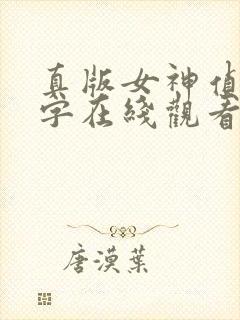 真版女神值
字在綫觀看
唐漠葉